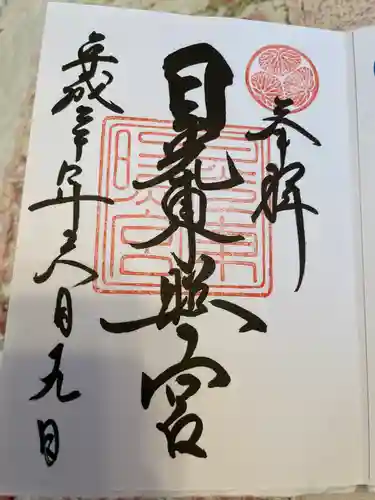 奉拝
日光東照宮
平成三十年六月九日